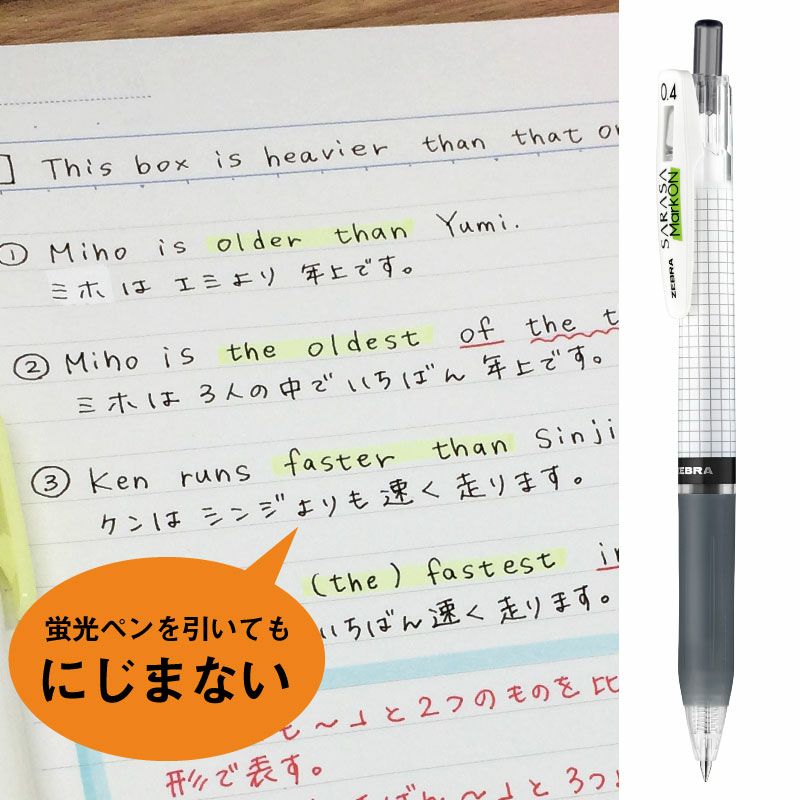 This box is heavier than that
① Miho is older than Yumi.
ミホは エミより 年上です。
② Miho is the oldest of the
ミホは 3人の中で いちばん 年上です。
③ Ken runs faster than Sinji
ケンは シンジよりも 速く 走ります。
(the) fastest
いちばん 速く 走ります。
蛍光ペンを引いても
にじまない
も 〜」と 2つのものを 比
形で表す。
ばん 〜」と 3つ
0.4
SARASA
MarkON
ZEBRA
ZEBRA